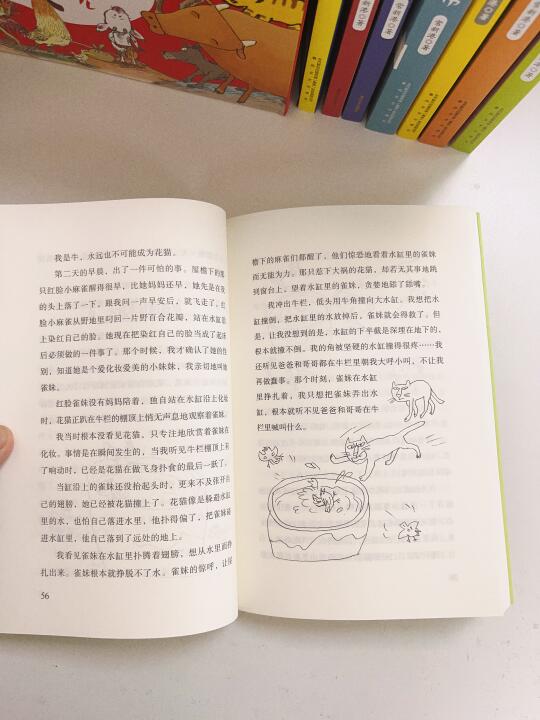 常新港◎著
常新港◎著
常新港◎著
常新港◎著
我是牛，水远也不可能成为花猫。
第二天的早晨，出了一件可怕的事。屋檐下的那
只红脸小麻雀醒得很早，比她妈妈还早，她先是在我
的头上落了一下，跟我问一声早安后，就飞走了。红
脸小麻雀从野地里叼回一片野百合花瓣，站在水缸沿
上染红自己的脸。她现在把染红自己的脸当成了起床
后必须做的一件事了。那个时候，我才确认了她的性
别，知道她是个爱化妆爱美的小妹妹，我亲切地叫她
雀妹。
红脸雀妹没有妈妈陪着，独自站在水缸沿上化妆
时，花猫正趴在牛栏的棚顶上悄无声息地观察着雀妹。
我当时根本没看见花猫，只专注地欣赏着雀妹在
化妆。事情是在瞬间发生的，当我听见牛栏棚顶上有
了响动时，已经是花猫在做飞身扑食的最后一跃了。
当缸沿上的雀妹还没抬起头时，更来不及张开自
己的翅膀，她已经被花猫撞上了。花猫像是躲避水缸
里的水，也怕自己落进水里，他扑得偏了，把雀妹碰
进水缸里，他自己落到了远处的地上。
我看见雀妹在水缸里扑腾着翅膀，想从水里面挣
扎出来。雀妹根本就挣脱不了水。雀妹的惊呼，让屋
56
檐下的麻雀们都醒了，他们惊恐地看着水缸里的雀妹
而无能为力。那只惹下大祸的花猫，却若无其事地跳
到窗台上，望着水缸里的雀妹，贪婪地舔了舔嘴。
我冲出牛栏，低头用牛角撞向大水缸。我想把水
缸撞倒，把水缸里的水放掉后，雀妹就会得救了。但
是，让我没想到的是，水缸的下半截是深埋在地下的，
根本就撞不倒。我的角被坚硬的水缸撞得很疼……我
还听见爸爸和哥哥都在牛栏里朝我大呼小叫，不让我
再做蠢事。那个时刻，雀妹在水缸
里挣扎着，我只想把雀妹弄出水
缸，根本就听不见爸爸和哥哥在牛
栏里喊叫什么。